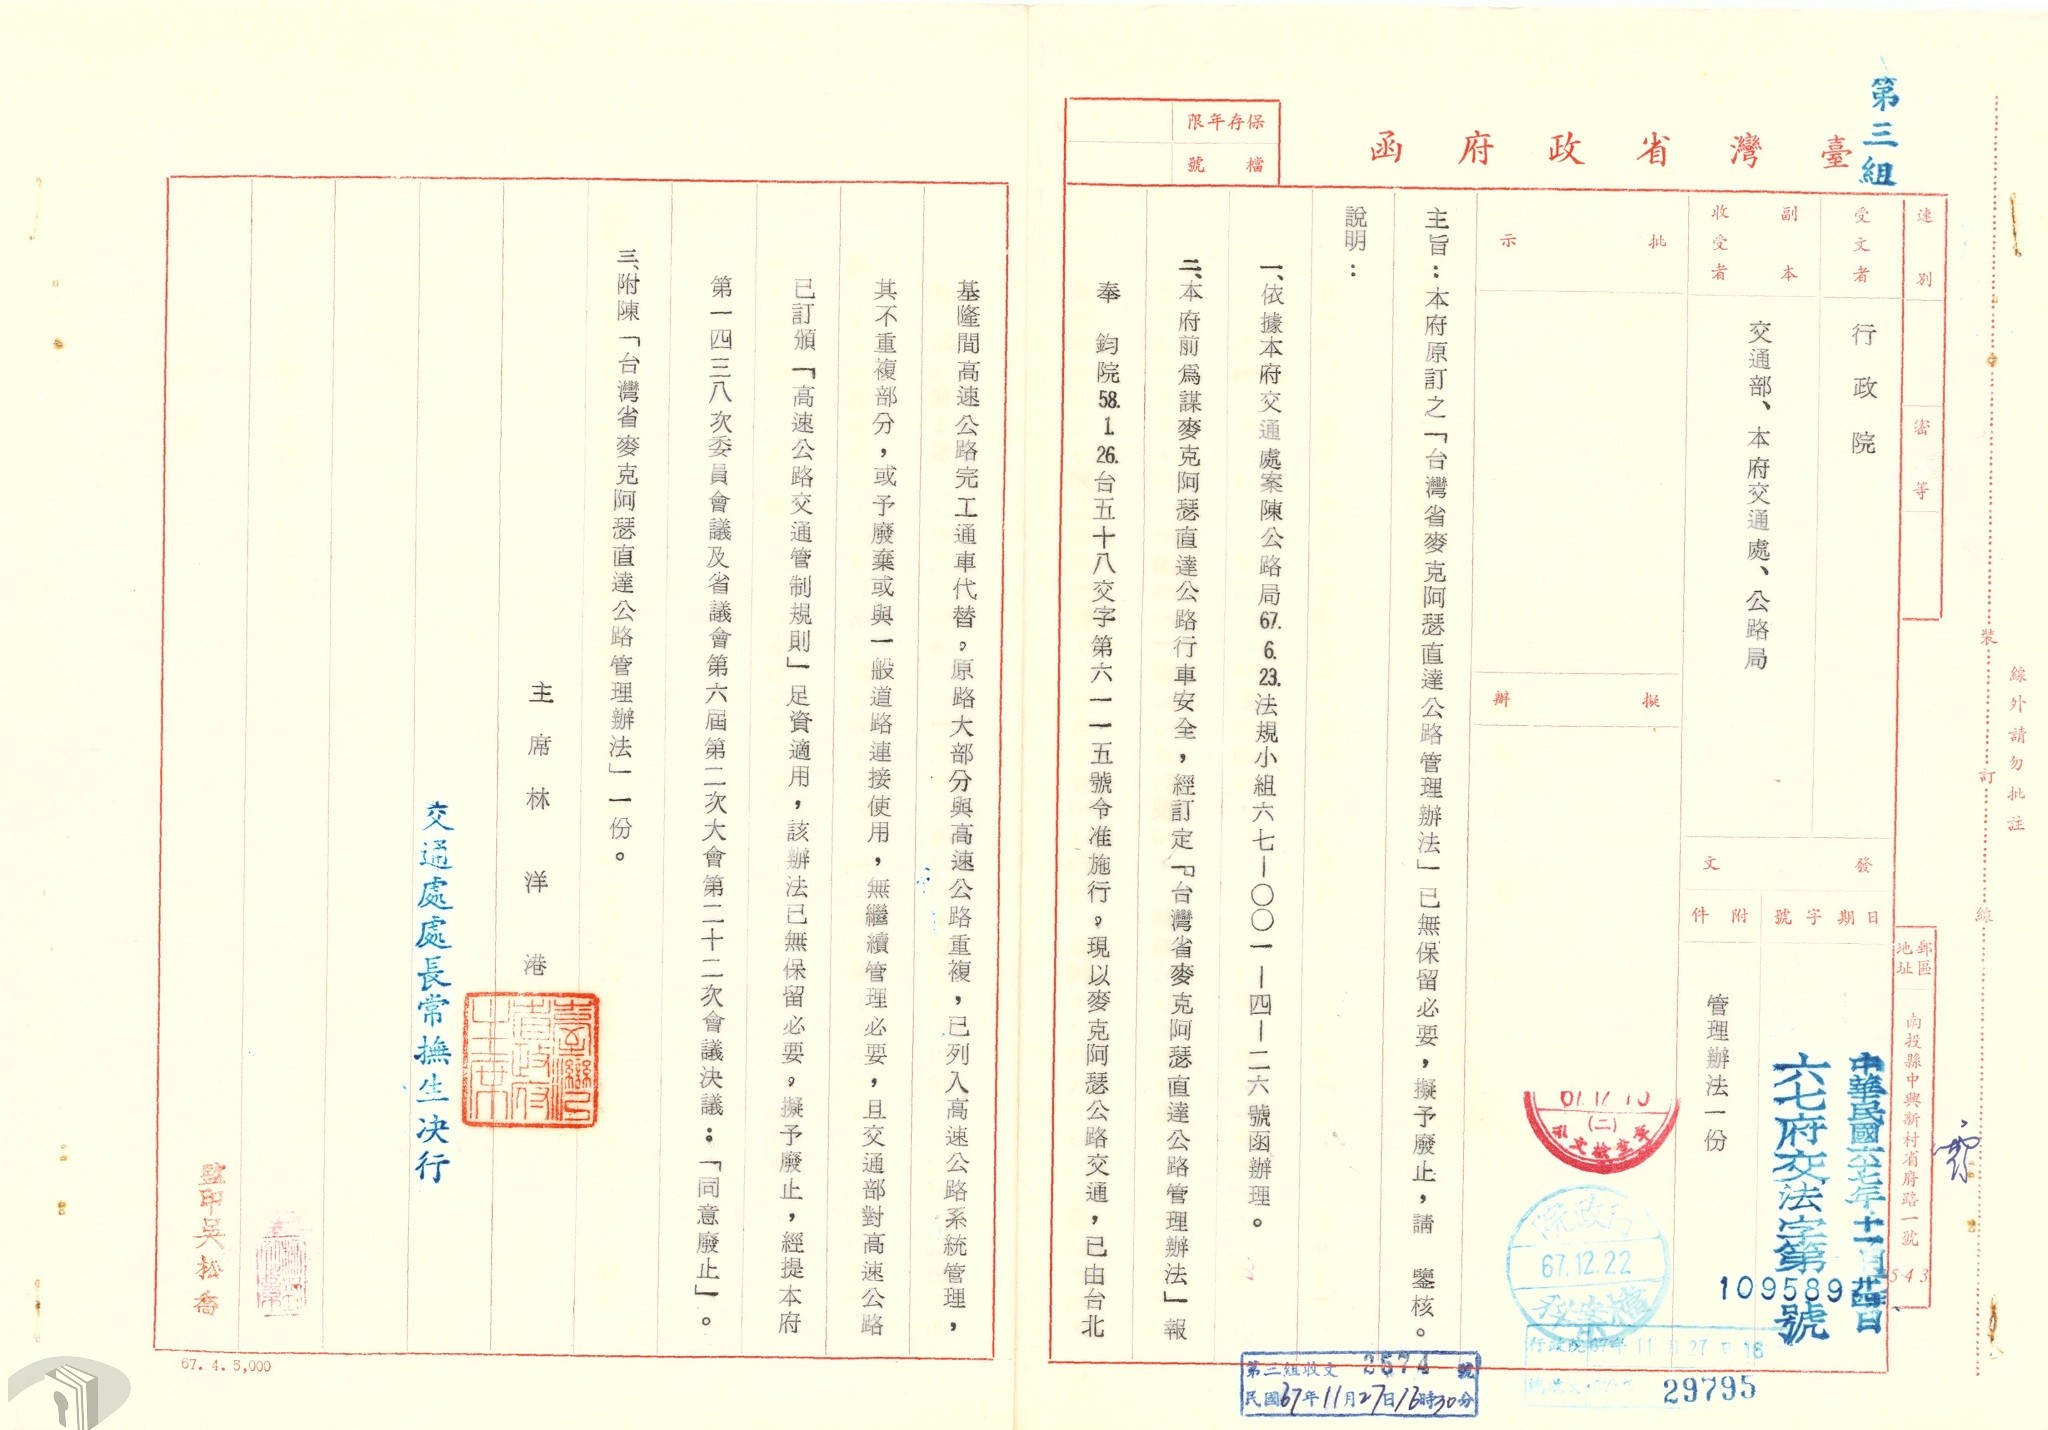 第三組
臺灣省政府函
保存年限
檔號
速別
密等
受文者
行政院
副本
收受者
交通部、本府交通處、公路局
批示
擬辦
發文
日期字號
附件
中華民國六七年十一月廿四日
六七府交法字第
109589
號
管理辦法一份
郵區
地址
南投縣中興新村省府路一號
543
裝訂線
線外請勿批註
主旨：本府原訂之「台灣省麥克阿瑟直達公路管理辦法」已無保留必要，擬予廢止，請　鑒核。
說明：
一、依據本府交通處案陳公路局67.6.23.法規小組六七—〇〇一—四—二六號函辦理。
二、本府前為謀麥克阿瑟直達公路行車安全，經訂定「台灣省麥克阿瑟直達公路管理辦法」報
奉　鈞院58.1.26.台五十八交字第六一一五號令准施行。現以麥克阿瑟公路交通，已由台北
基隆間高速公路完工通車代替。原路大部分與高速公路重複，已列入高速公路系統管理，
其不重複部分，或予廢棄或與一般道路連接使用，無繼續管理必要，且交通部對高速公路
已訂頒「高速公路交通管制規則」足資適用，該辦法已無保留必要。擬予廢止，經提本府
第一四三八次委員會議及省議會第六屆第二次大會第二十二次會議決議：「同意廢止」。
三、附陳「台灣省麥克阿瑟直達公路管理辦法」一份。
主席林洋港
臺灣省政府主席
交通處處長常撫生決行
監印吳松喬
67. 4. 5,000
67.12.22
檔案
第三組收文 2574 號
民國67年11月27日16時30分
行政院67年11月27日18
29795